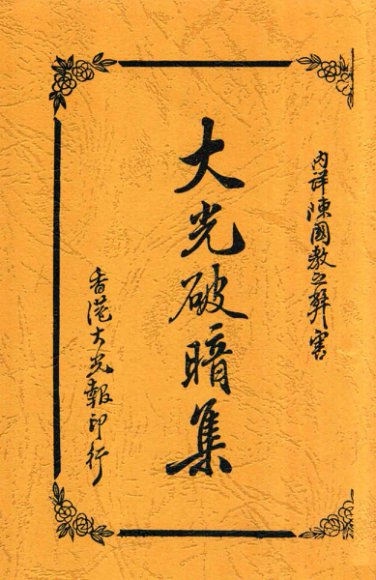 內詳陳國教之弊害
大光破暗集
香港大光報印行